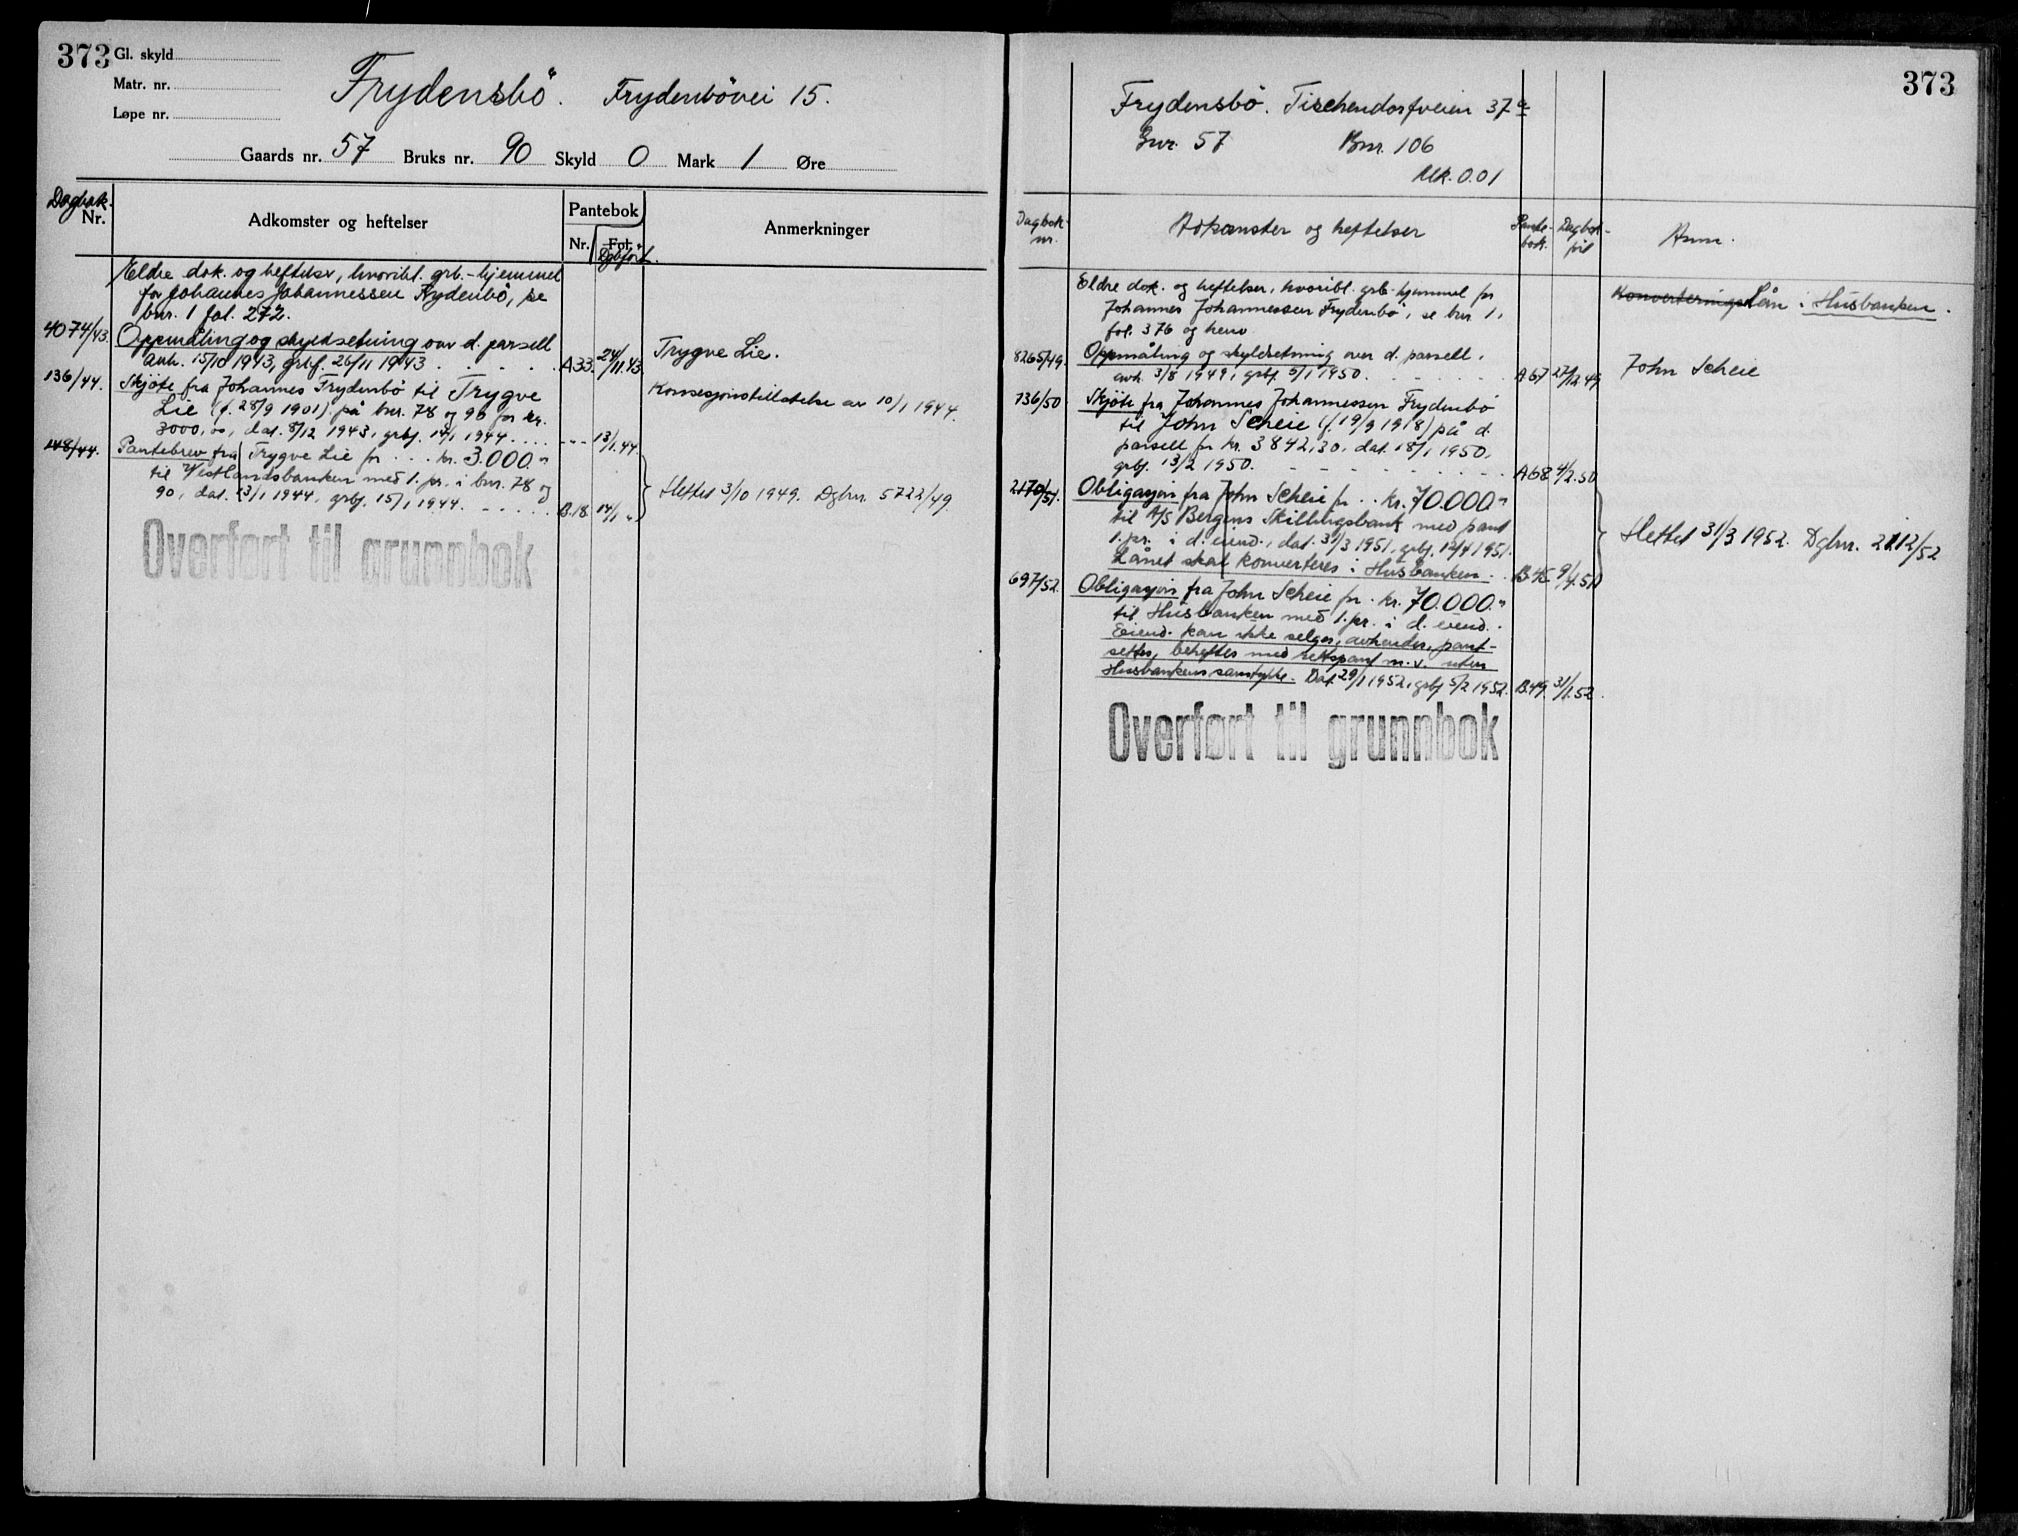 373 Gl. skyld
Matr. nr.
Løpe nr.
Frydensbö. Frydenbövei 15.
Gaards nr. 57 Bruks nr. 90 Skyld 0 Mark 1 Øre
Dagbok.
Nr.
Adkomster og heftelser
Pantebok
Nr. Fol.
Dgbført.
Anmerkninger
Eldre dok. og heftelser, hvoribl. grb.-hjemmel
for Johannes Johannessen Frydenbö, se
bnr. 1 fol. 272.
4074/43. Oppmåling og skyldsetning over d. parsell
avh. 15/10 1943, grbf. 26/11 1943 . . . . . A33. 24/11.43 Trygve Lie.
136/44. Skjöte fra Johannes Frydenbö til Trygve
Lie (f. 28/9 1901) på bnr. 78 og 90 for kr.
3000,00, dat. 8/12 1943, grbf. 14/1 1944 . . . . --- 13/1.44
Konsesjonstillatelse av 10/1 1944.
148/44. Pantebrev fra Trygve Lie for . . . kr. 3.000.-
til Vestlandsbanken med 1. pr. i bnr. 78 og
90, dat. 13/1 1944, grbf. 15/1 1944. . . . . . B.18. 14/1 "
Slettet 3/10 1949. Dgbnr. 5722/49
Overført til grunnbok
373
Frydensbö. Tischendorfveien 37a
Gnr. 57 Bnr. 106
Mk. 0.01
Dagbok-
nr.
Adkomster og heftelser
Pante-
bok.
Dagbok-
Anm.
Eldre dok. og heftelser, hvoribl. grb-hjemmel for
Johannes Johannessen Frydenbö, se bnr 1,
fol. 376 og henv.
Konverteringslån i Husbanken.
8265/49. Oppmåling og skyldsetning over d. parsell,
avh. 3/8 1949, grbf. 5/1 1950. . . . . . A67 27/12.49 John Scheie
736/50 Skjöte fra Johannes Johannessen Frydenbö
til John Scheie (f. 19/9 1918) på d.
parsell for kr. 3842,30, dat. 18/1 1950,
grbf. 13/2 1950. . . . . . . . A68 4/2.50
2170/51. Obligasjon fra John Scheie for . . kr. 70.000.-
til A/S Bergens Skillingsbank med pant
1. pr. i d. eiend., dat. 31/3 1951, grbf. 12/4 1951.
Lånet skal konverteres i Husbanken. . B.45 9/4.51
Slettet 31/3 1952. Dgbnr. 2112/52
697/52. Obligasjon fra John Scheie for . kr. 70.000.-
til Husbanken med 1. pr. i d. eiend. .
Eiend. kan ikke selges, avhendes, pant-
settes, beheftes med rettspant m.v. uten
Husbankens samtykke. Dat. 29/1 1952, grbf 5/2 1952. B.49. 31/1.52.
Overført til grunnbok